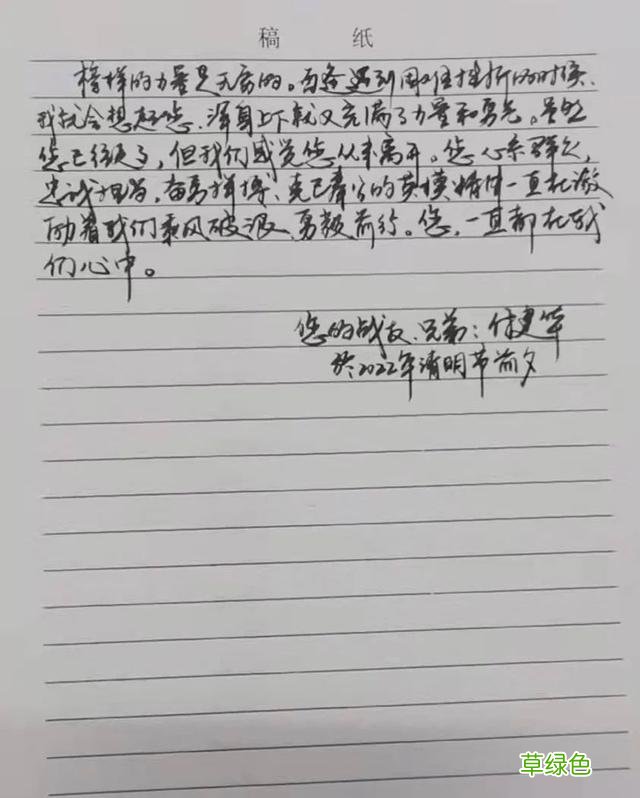 稿 纸
榜样的力量是无穷的。每逢遇到困难挫折的时候、
我就会想起您、浑身上下就又充满了力量和勇气。虽然
您已经走了，但我们感觉您从未离开。您心系群众，
忠诚担当、奋勇拼搏、克己奉公的英模精神一直在激
励着我们乘风破浪、勇毅前行。您，一直都在我
们心中。
您的战友、兄弟：付建华
于2022年清明节前夕
草绿色